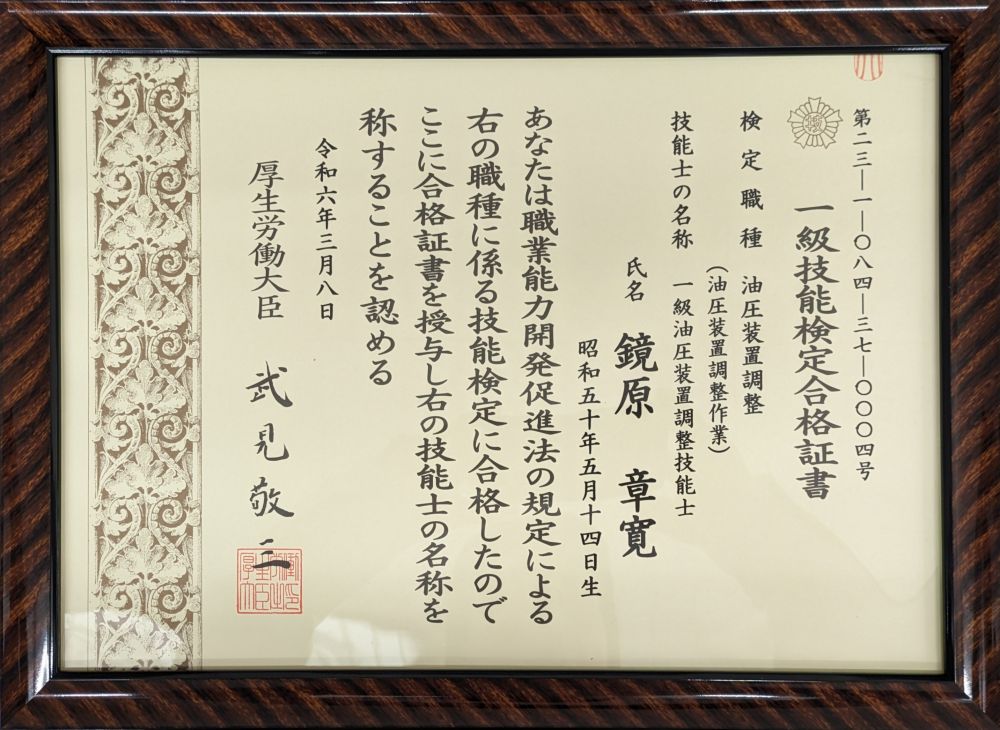 第二三―一―〇八四―三七―〇〇〇四号
一級技能検定合格証書
検定職種 油圧装置調整
(油圧装置調整作業)
技能士の名称 一級油圧装置調整技能士
氏名 鏡原 章寛
昭和五十年五月十四日生
あなたは職業能力開発促進法の規定による
右の職種に係る技能検定に合格したので
ここに合格証書を授与し右の技能士の名称を
称することを認める
令和六年三月八日
厚生労働大臣 武見敬三